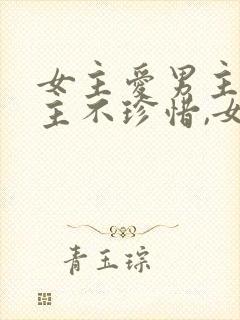 女主愛男主
主不珍惜,女
青玉琮